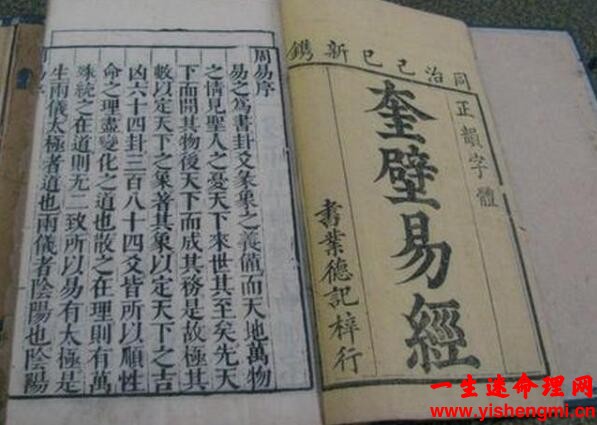 同治己巳新鐫
正韻字體
奎壁易經
書業德記梓行
周易序
易之爲書卦爻彖象之義備而天地萬物
之情見聖人之憂天下來世其至矣先天
下而開其物後天下而成其務是故極其
數以定天下之象著其象以定天下之吉
凶六十四卦三百八十四爻皆所以順性
命之理盡變化之道也散之在理則有萬
殊統之在道則无二致所以易有太極是
生兩儀太極者道也兩儀者陰陽也陰陽
一生速命理网
www.yishengmi.cn